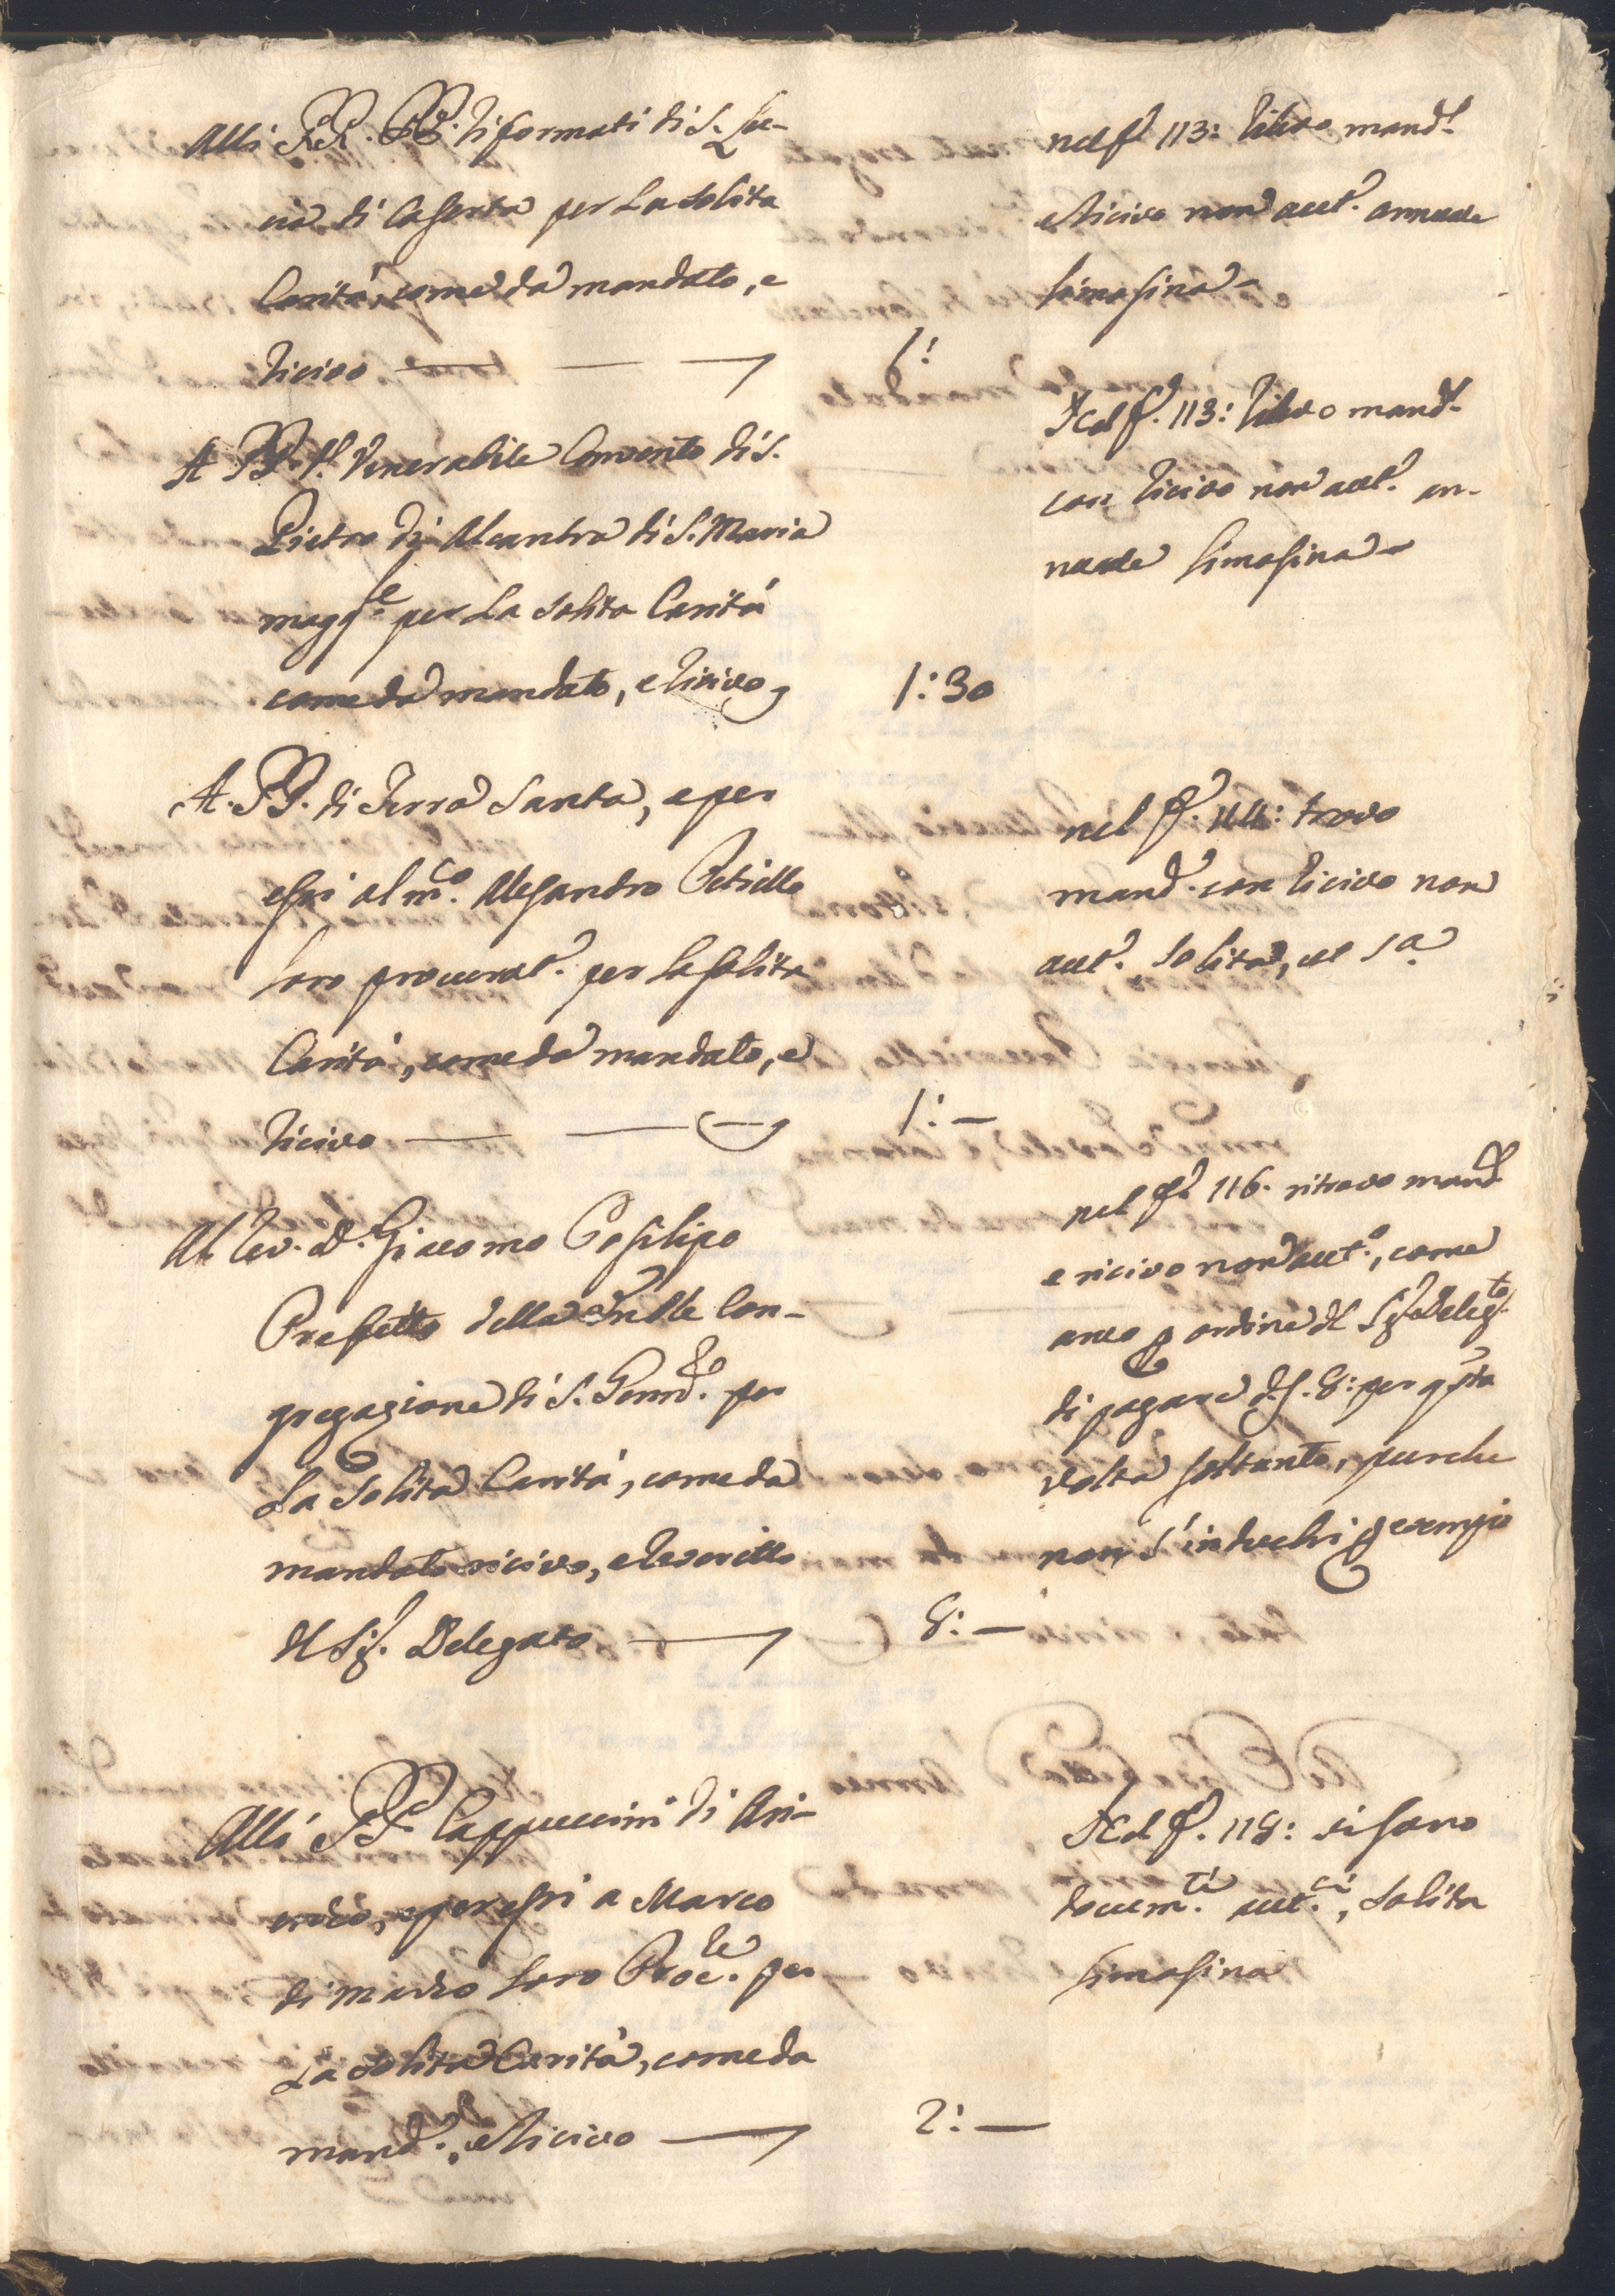 Alli RR. PP. Riformati di S. Lu-
cia di Caserta per la solita
Carità, come da mandato, e
ricivo
1:
nel fl 113: libro mand.l
e ricivo non aut.o annuale
limosina
A PP. Venerabile Convento di S.
Pietro di Alcantra di S. Maria
magg.e per la solita Carità
come da mandato, e ricivo
1:30
Nel f. 113: libro mand.l
con ricivo non aut.o an-
nuale limosina
A. PP. di Terra Santa, e per
essi al m.co Alesandro Petiello
loro procurat.e per la solita
Carità, come da mandato, e
ricivo
1:—
nel f. 114: trovo
mand.o con ricivo non
aut.o solita, ut s.a
Al Rev. D. Giacomo Posilipo
Prefetto della
Con-
gregazione di S. Genn.o per
la solita Carità, come da
mandato ricivo, e rescritto
del Sig.r Delegato
8:—
nel fl 116. ritrovo mand.o
e ricivo non aut.o, come
anco p ordine del Sig.r Deleg.to
di pagare d.s. 8: per q.sta
volta soltanto, purche
non s'induchi p esempio
Alli PP. Cappuccini di Ari-
enzo, e per essi a Marco
di Mauro loro Proc.re per
la solita Carità, come da
mand.o, e ricivo
2:—
Nel f. 118: si sono
docum.ti aut.ci, solita
limosina